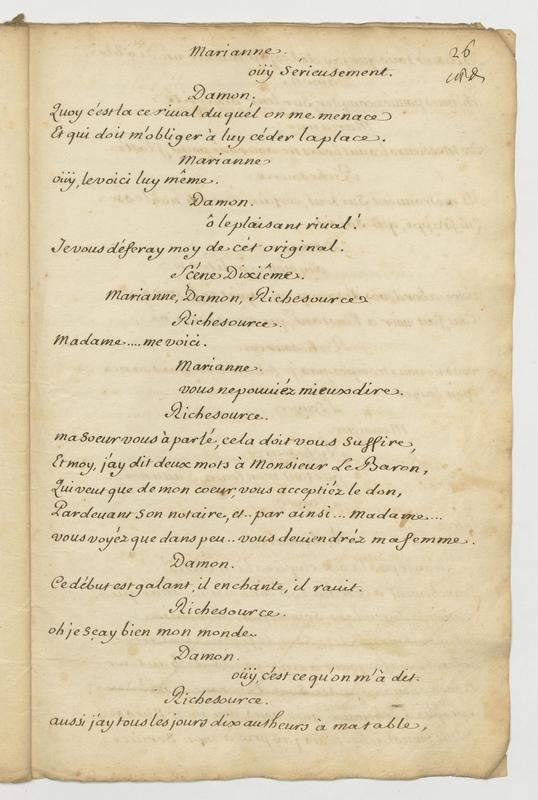 26
Marianne.
oüÿ Sérieusement.
Damon.
Quoy c'est la ce riual du quél on me menace
Et qui doit m'obliger à luy céder la place.
Marianne
oüÿ, le voici luy même.
Damon.
ô le plaisant riual!
Je vous déferay moy de cét original.
Scéne Dixiême.
Marianne, Damon, Richesource
Richesource.
Madame.... me voici.
Marianne.
vous ne pouuiéz mieux dire.
Richesource.
ma Soeur vous à parlé, cela doit vous Suffire,
Et moy, j'ay dit deux mots à Monsieur Le Baron,
Qui veut que de mon coeur, vous acceptiéz le don,
Pardeuant Son notaire, et.. par ainsi... Madame...
vous voyéz que dans peu.. vous deuiendréz ma femme.
Damon.
Ce début est galant, il enchante, il rauit.
Richesource.
oh je Sçay bien mon monde.
Damon.
oüÿ, c'est ce qu'on m'à dit.
Richesource.
aussi j'ay tous les jours dix autheurs à ma table,